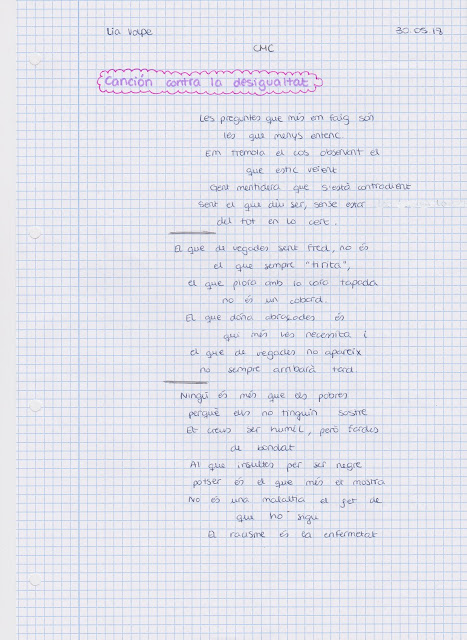 Lia Volpe
30.05.18
CMC
Canción contra la desigualtat
Les preguntes que més em faig són
les que menys entenc.
Em tremola el cos observant el
que estic veient
Gent mentidera que s'està contradient
sent el que diu ser, sense estar
del tot en lo cert.
El que de vegades sent fred, no és
el que sempre "tirita",
el que plora amb la cara tapada
no és un cobard.
El que dóna abraçades és
qui més les necessita i
el que de vegades no apareix
no sempre arribarà tard.
Ningú és més que els pobres
perquè ells no tinguin sostre
Et creus ser humil, però fardes
de bondat
Al que insultes per ser negre
potser és el que més et mostra
No és una malaltia el fet de
que ho sigui
El racisme és la enfermetat